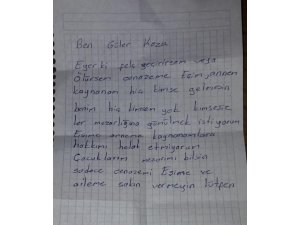 Ben Güler Keza
Eğer bi şey geçirirsem veya
Ölürsem cenazeme Eşim, annem
kaynanam hiç kimse gelmesin
benim hiç kimsem yok kimsesiz
ler mezarlığına gömülmek istiyorum
Eşime anneme kaynanamlara
hakkımı helal etmiyorum
Çocuklarım mezarımı bilsin
sadece cenazemi Eşime ve
aileme sakın vermeyin lütfen